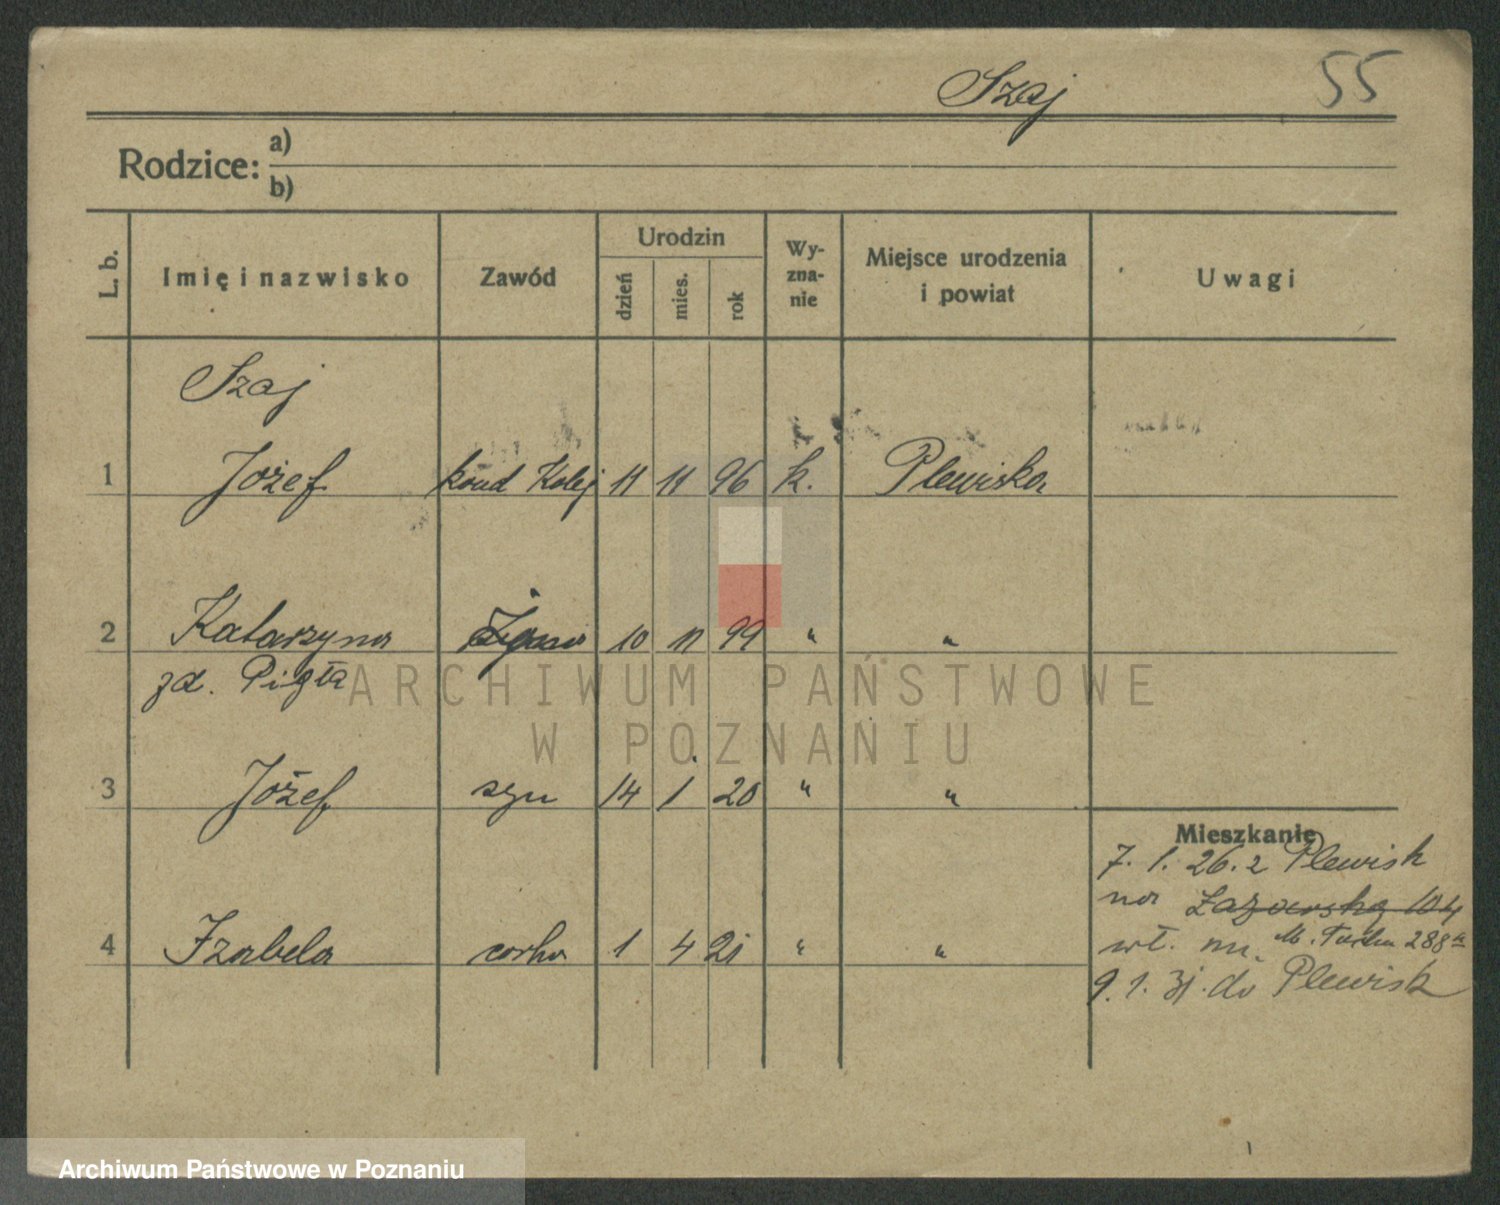 Szaj 55
Rodzice: a)
b)
L. b. Imię i nazwisko Zawód Urodzin dzień mies. rok Wyznanie Miejsce urodzenia i powiat Uwagi
Szaj
1 Józef kond Kolej 11 11 96 k. Plewiska
2 Katarzyna 10 11 99 " "
zd. Pigła
3 Józef syn 14 1 20 " "
Mieszkanie
7. 1. 26. z Plewisk
na Łazarska 104
4 Izabela corka 1 4 21 " "
wł. M. 288a
9. 1. 31. do Plewisk
ARCHIWUM PAŃSTWOWE
W POZNANIU
Archiwum Państwowe w Poznaniu